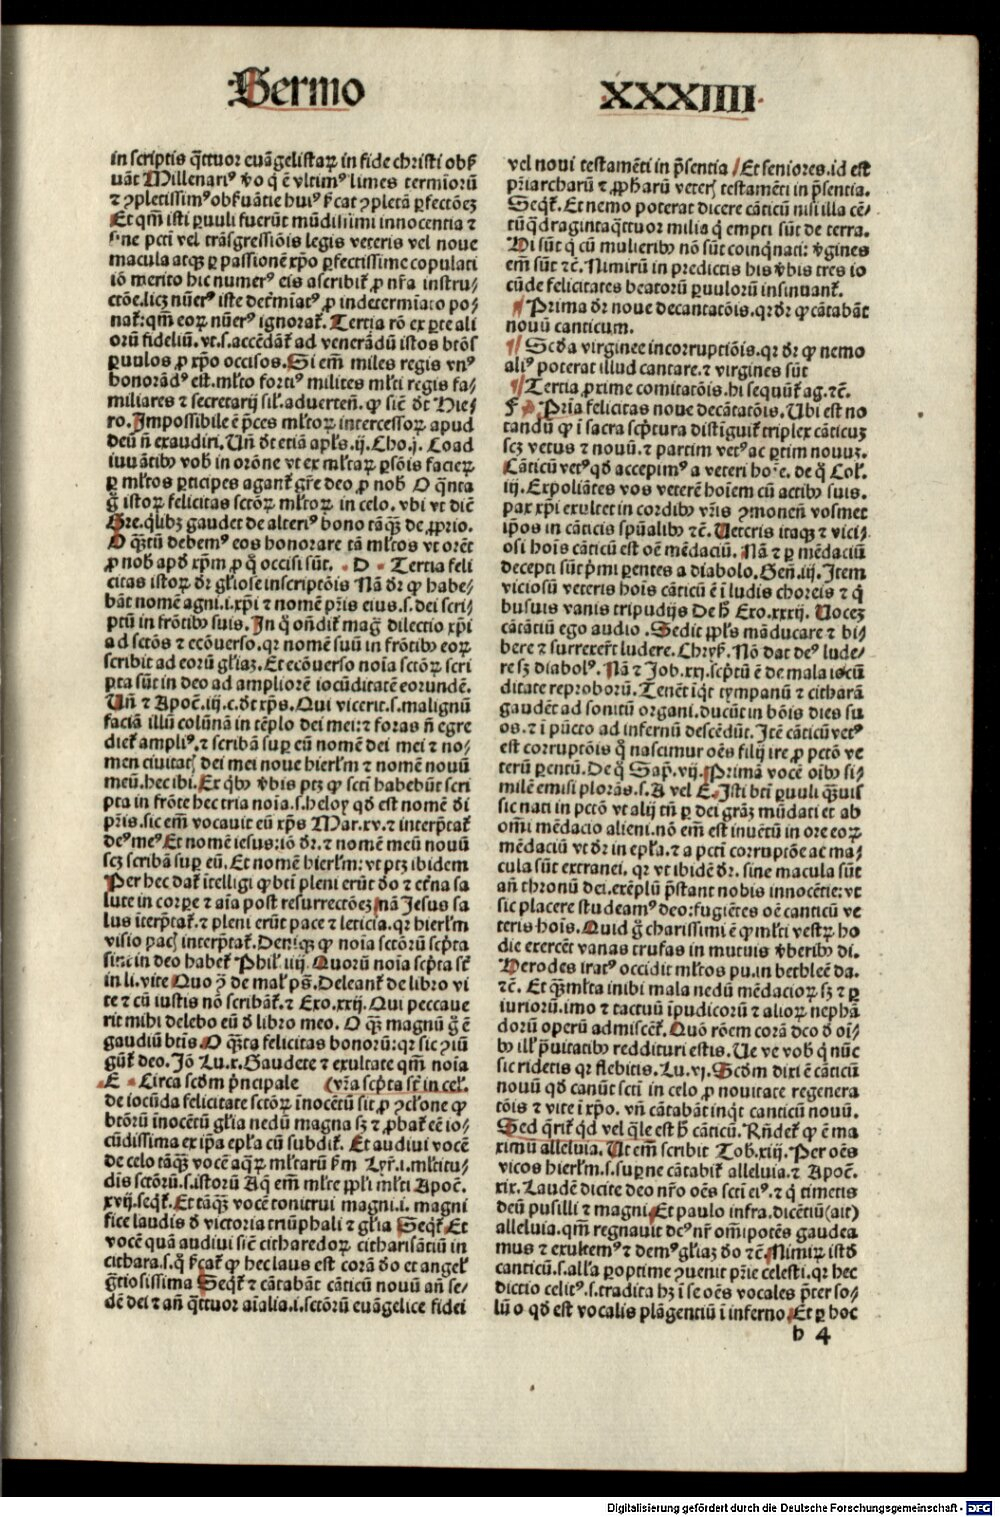 Sermo
XXXIIII
in scriptis q̄ttuor euāgelistaꝝ in fide christi obſ
uāt Millenariꝰ ꝟo q̄ ē vltimꝰ limes termīorū
⁊ ꝯpletissimꝰ obſuātie huiꝰ ẜcat ꝯpletā ꝑfectōeꝫ
Et qm̄ isti ꝑuuli fuerūt mūdissimi innocentia ⁊
sine pctī vel trāsgressiōis legis veteris vel noue
macula atqꝫ ꝑ passionē xp̄o ꝑfectissime copulati
iō merito hic numerꝰ eis ascribit̄ ꝓ nr̄a instru⸗
ctōe.licꝫ nūerꝰ iste det̄mīatꝰ ꝓ indetermīato po⸗
nat̄:qm̄ eoꝝ nūerꝰ ignorat̄. Tertia rō ex ꝑte ali
orū fideliū. vt.s.accēdāt̄ ad venerādū istos btōs
ꝑuulos ꝓ xp̄o occisos. Si em̄ miles regis vnꝰ
honorādꝰ est.ml̄to fortiꝰ milites ml̄ti regis fa⸗
miliares ⁊ secretarij sil̄.aduerteñ. ꝙ sic̄ dt̄ Hie⸗
ro. Impossibile ē p̄ces ml̄toꝝ intercessoꝝ apud
deū ñ exaudiri. Vñ dt̄ etiā apl̄s.ij. Cho.j. Coad
iuuātibꝰ vob̄ in orōne vt ex ml̄taꝝ ꝑsōis facieꝝ
ꝑ ml̄tos ꝑticipes agant̄ gr̄e deo ꝓ nob̄ O q̄nta
g̊ istoꝝ felicitas sctōꝝ ml̄toꝝ in celo. vbi vt dic̄
Gre.q̄libꝫ gaudet de alteriꝰ bono tāq̄ꝫ de ꝓprio.
O q̄ꝫtū debemꝰ eos honorare tā ml̄tos vt orēt
ꝓ nob̄ apd̄ xp̄m ꝓ q̄ occisi sūt. D Tertia feli
citas istoꝝ dr̄ gl̄iose inscriptōis Nā dr̄ ꝙ habe⸗
bāt nomē agni.i.xp̄i ⁊ nomē pr̄is eius.s.dei scri⸗
ptū in frōtibꝰ suis. In q̄ ondit̄ mag̊ dilectio xp̄i
ad sctōs ⁊ ecōuerso.qr nomē suū in frōtibꝰ eoꝝ
scribit ad eorū gl̄iaꝫ. Et ecōuerso noīa sctōꝝ scri
pta sūt in deo ad ampliorē iocūditatē eorundē.
Vñ ⁊ Apoc̄.iij.c.dt̄ xp̄s. Qui vicerit.s.malignū
faciā illū colūnā in tēplo dei mei:⁊ foras ñ egre
diet̄ ampliꝰ.⁊ scribā suꝑ eū nomē dei mei ⁊ no⸗
men ciuitatꝭ dei mei noue hierl̄m ⁊ nomē nouū
meū.hec ibi. Ex q̄bꝰ ꝟbis ptꝫ ꝙ sctī habebūt scri
pta in frōte hec tria noīa.s.heloy qd̄ est nomē di
pr̄is.sic em̄ vocauit eū xp̄s Mar.xv.⁊ interp̄tat̄
deꝰmeꝰ Et nomē iesus:iō dr̄.⁊ nomē meū nouū
scꝫ scribā suꝑ eū. Et nomē hierl̄m:vt ptꝫ ibidem
Per hec dat̄ ītelligi ꝙ btī pleni erūt dō ⁊ etn̄a sa
lute in corꝑe ⁊ aīa post resurrectōeꝫ nā Jesus sa
lus īterp̄tat̄.⁊ pleni erūt pace ⁊ leticia.qr hierl̄m
visio pacꝭ interp̄tat̄.Deniqꝫ ꝙ noīa sctōrū scp̄ta
sint in deo habet̄ Phil̄.iiij. Quorū noīa scp̄ta st̄
in li.vite Quo ꝯ̄ de mal̄ ps̄. Deleant̄ de libro vi
te ⁊ cū iustis nō scribāt̄.⁊ Exo.xxij. Qui peccaue
rit mihi delebo eū d̄ libro meo. O q̄ꝫ magnū g̊ ē
gaudiū btīs. O q̄ꝫta felicitas honorū:qr sic ꝯiū
gūt̄ deo. Jō Lu.x. Gaudete ⁊ exultate qm̄ noīa
E Circa scd̄m p̄ncipale (vr̄a scp̄ta st̄ in cel̄.
de iocūda felicitate sctōꝝ īnocētū sit ꝓ ꝯcl̄one ꝙ
btōrū īnocētū gl̄ia nedū magna sꝫ ⁊ ꝓbat̄ eē io⸗
cūdissima ex ip̄a epl̄a cū subdit̄. Et audiui vocē
de celo tāq̄ꝫ vocē aq̄ꝝ ml̄tarū ẜm Lyr̄.i.ml̄titu⸗
dis sctōrū.s.istorū Aq̄ em̄ ml̄te ppl̄i ml̄ti Apoc̄.
xvij.seqt̄. Et tāq̄ꝫ vocē tonitrui magni.i. magni
fice laudis d̄ victoria triūphali ⁊ gl̄ia Seqt̄. Et
vocē quā audiui sic̄ citharedoꝝ citharisātiū in
cithara.s.q̄ ẜcat̄ ꝙ hec laus est corā dō et angel̄
ḡtiosissima Seqt̄ ⁊ cātabāt cāticū nouū añ se⸗
dē dei ⁊ añ q̄ttuor aīalia.i.sctōrū euāgelice fidei
vel noui testamēti in p̄sentia Et seniores.id est
pr̄iarcharū ⁊ ꝓpharū veterꝭ testamēti in p̄sentia.
Seqt̄. Et nemo poterat dicere cāticū nisi illa cē⸗
tūq̄dragintaq̄ttuor milia q̄ empti sūt de terra.
Hi sūt q̄ cū mulieribꝰ nō sūt coinq̄nati: ꝟgines
em̄ sūt ⁊c̄. Nimirū in predictis his ꝟbis tres io
cūde felicitates beatorū ꝑuulorū insinuant̄.
Prima dr̄ noue decantatōis.qr dr̄ ꝙ cātabāt
nouū canticum.
Scd̄a virginee incorruptiōis.qr dr̄ ꝙ nemo
aliꝰ poterat illud cantare.⁊ virgines sūt
Tertia ꝓxime comitatōis.hi sequūt̄ ag.⁊c̄.
F Pr̄ia felicitas noue decātatōis. Ubi est no
tandū ꝙ ī sacra scp̄tura distīguit̄ triplex cāticuꝫ
scꝫ vetus ⁊ nouū.⁊ partim vetꝰ ac ꝑtim nouuꝫ.
Cāticū vetꝰ qd̄ accepimꝰ a veteri hoīe. de q̄ Col̄.
iij. Expoliātes vos veterē hoīem cū actibꝰ suis.
pax xp̄i exultet in cordibꝰ vr̄is ꝯmoneñ vosmet
ip̄os in cāticis spūalibꝰ ⁊c̄. Veteris itaqꝫ ⁊ vici⸗
osi hoīs cāticū est oē mēdaciū. Nā ⁊ ꝑ mēdaciū
decepti sūt p̄mi ꝑentes a diabolo. Gen̄.iij. Item
viciosū veteris hoīs cāticū ē ī ludis choreis ⁊ q̄
busuis vanis tripudijs De h̄ Exo.xxxij. Voceꝫ
cātātiū ego audio. Sedit ppl̄s māducare ⁊ bi⸗
bere ⁊ surrexerūt ludere. Chryſ. Nō dat deꝰ lude⸗
re sꝫ diabolꝰ. Nā ⁊ Job.xxj.scp̄tū ē de mala iocū
ditate reproborū. Tenēt īqt̄ tympanū ⁊ citharā
gaudēt ad sonitū organi.ducūt in bōis dies su
os.⁊ ī pūcto ad infernū descēdūt. Itē cāticū vetꝰ
est corruptōis q̄ nascimur oēs filij ire ꝓ pctō ve
terū ꝑentū. De q̄ Sap̄.vij. Primā vocē oībꝰ si⸗
milē emisi plorās.s.A vel E. Isti btī ꝑuuli q̄ꝫuis
sic nati in pctō vt alij tn̄ ꝑ dei grāꝫ mūdati et ab
om̄i mēdacio alieni.nō em̄ est inuētū in ore eoꝝ
mēdaciū vt dr̄ in epl̄a.⁊ a pctī corruptōe ac ma⸗
cula sūt extranei. qr vt ibidē dr̄. sine macula sūt
añ thronū dei.exēplū p̄stant nobis innocētie:vt
sic placere studeamꝰ deo:fugiētes oē canticū ve
teris hoīs. Quid g̊ charissimi ē ꝙ ml̄ti vestꝝ ho
die exercēt vanas trufas in mutuis ꝟberibꝰ di.
Herodes iratꝰ occidit ml̄tos pu.in bethleē da.
⁊c̄. Et q̄ꝫml̄ta inibi mala nedū mēdacioꝝ sꝫ ⁊ ꝑ
iuriorū.imo ⁊ tactuū īpudicorū ⁊ alioꝝ nephā
dorū operū admiscēt̄. Quō rōem corā deo d̄ oī⸗
bꝰ ill̄ p̄uitatibꝰ reddituri estis. Ue ve vob̄ q̄ nūc
sic ridetis qr flebitis. Lu.vj. Scd̄m dixi ē cāticū
nouū qd̄ canūt sctī in celo ꝓ nouitate regenera
tōis ⁊ vite ī xp̄o. vñ cātabāt inqt̄ canticū nouū.
Sed q̄rit̄ qd̄ vel q̄le est h̄ cāticū. Rn̄det̄ ꝙ ē ma
ximū alleluia. Ut em̄ scribit Tob.xiij. Per oēs
vicos hierl̄m.s.suꝑne cātabit̄ alleluia.⁊ Apoc̄.
xix. Laudē dicite deo nr̄o oēs sctī eiꝰ.⁊ q̄ timetis
deū pusilli ⁊ magni. Et paulo infra.dicētiū(ait)
alleluia.qm̄ regnauit deꝰ nr̄ om̄ipotēs gaudea
mus ⁊ exultemꝰ ⁊ demꝰ gl̄iaꝫ dō ⁊c̄. Nimiꝝ istd̄
canticū.s.all'a ꝑoptime ꝯuenit pr̄ie celesti.qr hec
dictio celitꝰ.s.tradita hꝫ ī se oēs vocales p̄ter so⸗
lū o qd̄ est vocalis plāgentiū ī inferno. Et ꝑ hoc
b 4
Digitalisierung gefördert durch die Deutsche Forschungsgemeinschaft - DFG